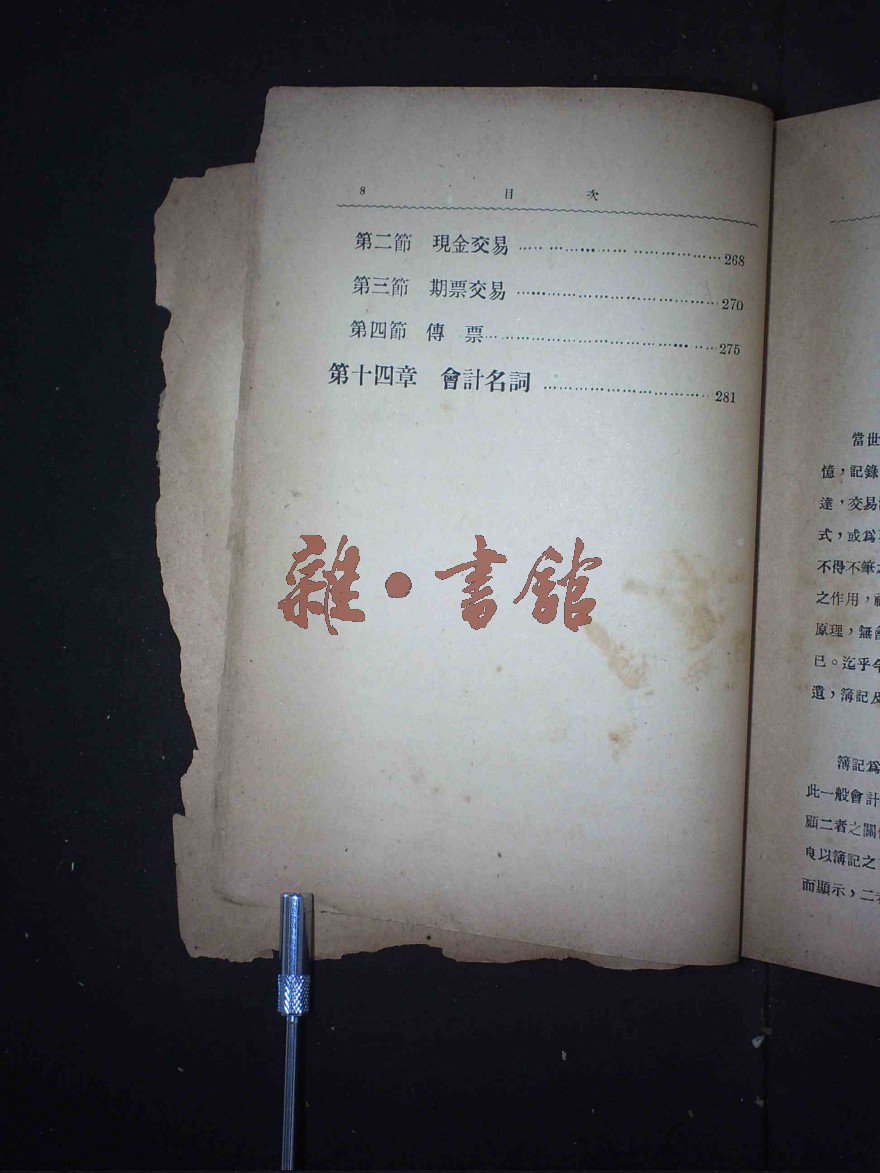 8 目 次
第二節 現金交易 ……………………………… 268
第三節 期票交易 ……………………………… 270
第四節 傳 票 ……………………………… 275
第十四章 會計名詞 ……………………………… 281
雜·書館
當世
憶，記錄
達，交易
式，或爲
不得不筆
之作用，
原理，無
已。迄乎
遺，簿記及
簿記爲
此一般會計
顧二者之關
良以簿記之
而顯示，二